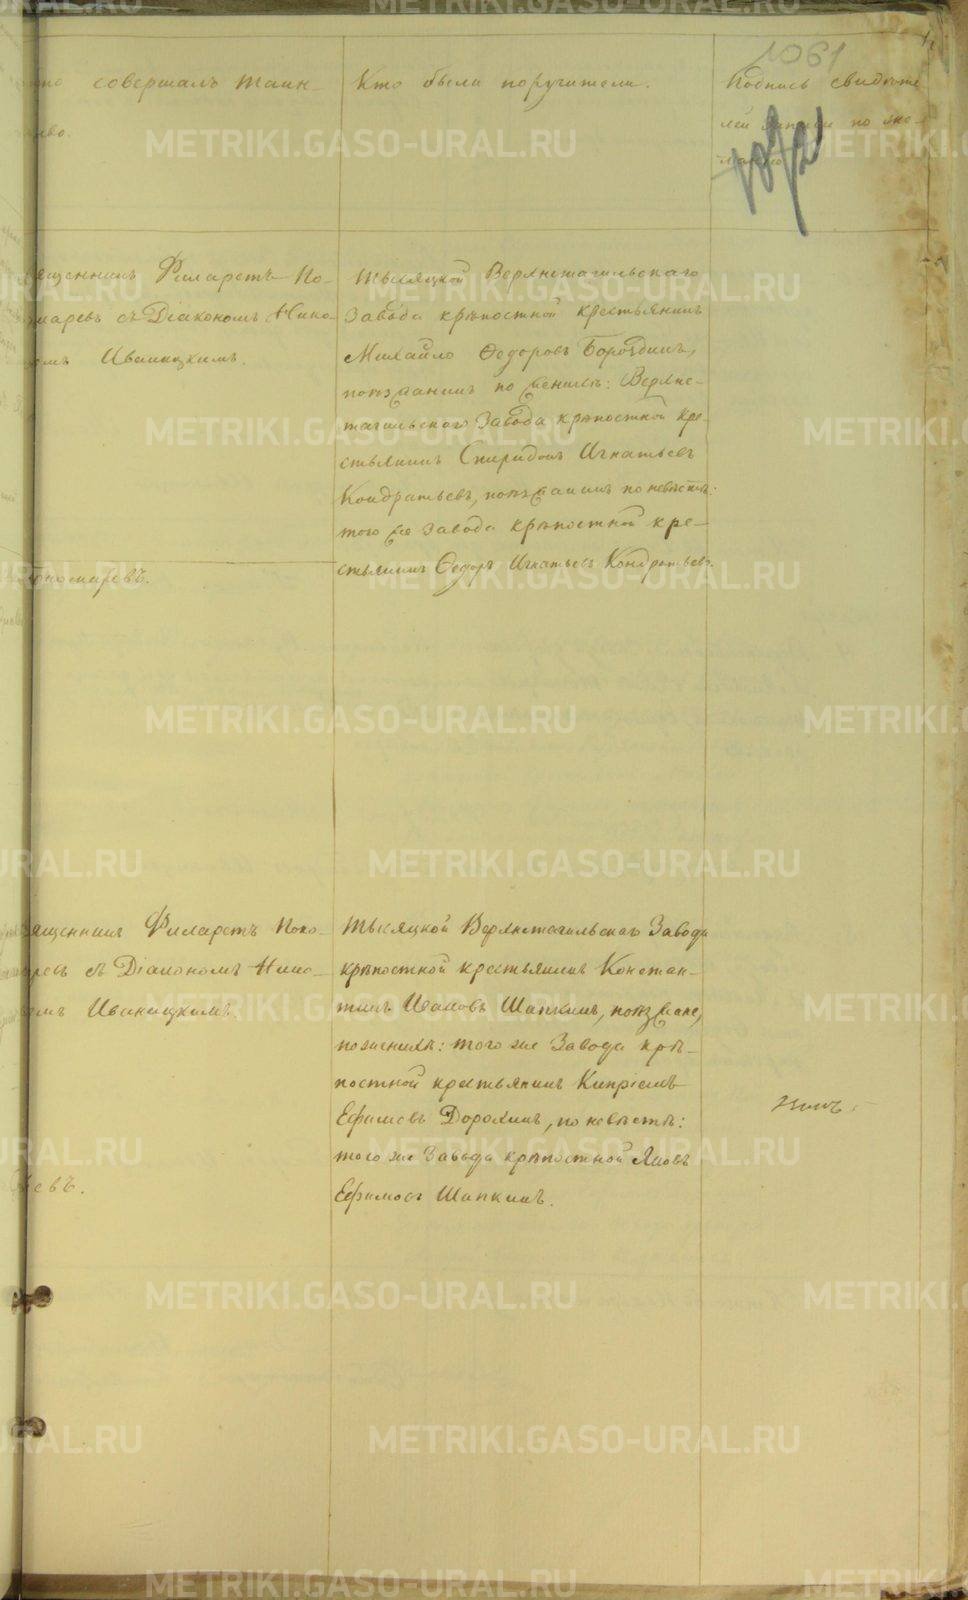 1061
совершалъ таин-
Кто были поручители.
Подпись свидѣте
лей записи по же-
ланію
1072
Священникъ Филаретъ По-
номаревъ съ Діакономъ Нико-
Иваницкимъ.
Пономаревъ.
Тысяцкой Верхнетагильскаго
Завода крѣпостной крестьянинъ
Михайло Ѳедоровъ Бороздинъ,
поѣзжанинъ по женихѣ: Верхне-
тагильскаго Завода крѣпостной кре-
стьянинъ Спиридонъ Игнатьевъ
Кондратьевъ, поѣзжанинъ по невѣстѣ:
того же Завода крѣпостной кре-
стьянинъ Ѳедоръ Игнатьевъ Кондратьевъ.
Священникъ Филаретъ Поно-
маревъ съ Діакономъ Нико-
Иваницкимъ
евъ.
Тысяцкой Верхнетагильскаго Завода
крѣпостной крестьянинъ Констан-
тинъ Ивановъ Шапкинъ, поѣзжане,
по женихѣ: того же Завода крѣ-
постной крестьянинъ Кипріянъ
Ефимовъ Дорохинъ, по невѣстѣ:
того же Завода крѣпостной Яковъ
Ефимовъ Шапкинъ.
METRIKI.GASO-URAL.RU